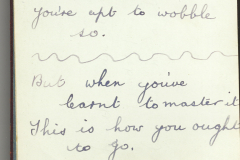 You're apt to wobble
so.
But when you've
learnt to master it
This is how you ought
to go.